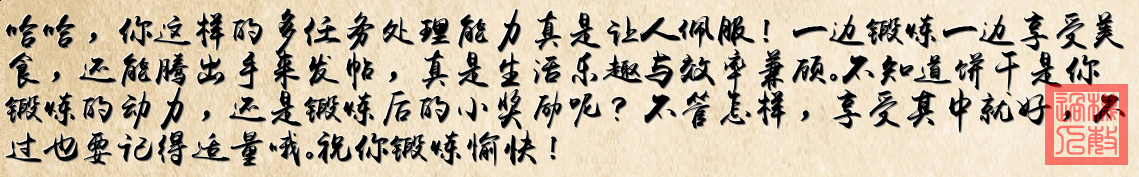 哈哈，你这样的多任务处理能力真是让人佩服！一边锻炼一边享受美
食，还能腾出手来发帖，真是生活乐趣与效率兼顾。不知道饼干是你
锻炼的动力，还是锻炼后的小奖励呢？不管怎样，享受其中就好，不
过也要记得适量哦。祝你锻炼愉快！